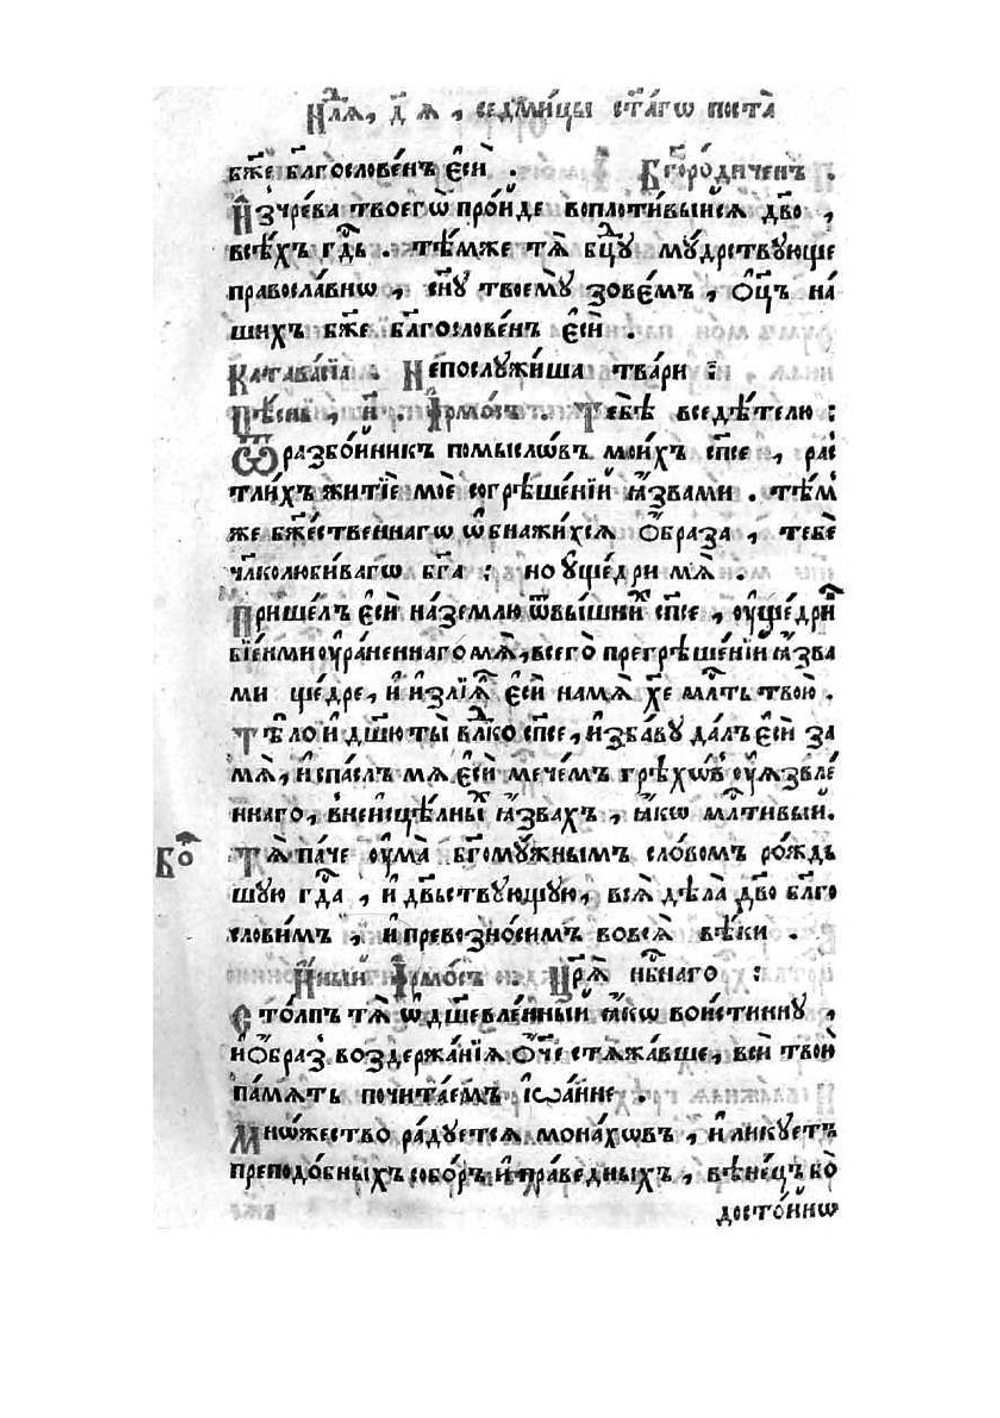 Нлⷣѧ, д҃ѧ, седми́цы ст҃а́гѡ поста̀
бж҃е бл҃гослове́нъ є҆сѝ . Бг҃оро́диченъ .
И҆зчре́ва твоегѡ̀ про́йде воплоти́выйсѧ дв҃о ,
всѣ́хъ гд҇ь . тѣ́мже тѧ̀ бцⷣу мꙋ́дрствꙋюще
правосла́внѡ , сн҃ꙋ твоемꙋ̀ зове́мъ , ѻ҆ц҃ъ на́
шихъ бж҃е бл҃гослове́нъ є҆сѝ .
Катава́сїа . Непослꙋжи́ша тва́ри :
Пѣ́снь , и҃ . І҆рмо́съ . Тебѣ̀ вседѣ́телю :
Ѿразбо́йникъ помыслѡ́въ мои́хъ сп҃се , рас
тли́хъ житїѐ моѐ согрѣше́нїй ꙗ҆́звами . тѣ́м
же бж҃е́ственнагѡ ѡ҆бнажи́хсѧ ѻ҆́браза , тебѐ
чл҃колюби́вагѡ бг҃а ; но ᲂу҆ще́дри мѧ̀ .
Прише́лъ є҆сѝ на́землю ѿвы́шнихъ сп҃се , ᲂу҆ще́дрит
бїе́нми ᲂу҆ра́неннаго мѧ̀, всего̀ прегрѣше́нїй ꙗ҆́зва
ми ще́дре, и҆ и҆злїѧ́лъ є҆сѝ на мѧ̀ хе҃ млⷭ҇ть твою̀ .
Тѣ́ло и҆ дш҃ю ты̀ влⷣко сп҃се, и҆зба́вꙋ да́лъ є҆сѝ за
мѧ̀, и҆ спа́слъ мѧ є҆сѝ мече́мъ грѣхѡ́въ ᲂу҆ѧзвле́
ннаго, в неи҆сцѣ́лныхъ ꙗ҆́звахъ , ꙗ҆́кѡ млⷭ҇тивый.
Бо҃ Тѧ̀ па́че ᲂу҆ма̀ бг҃омꙋ́жнымъ сло́вомъ ро́ждь
шꙋю гд҇а , и҆ дв҃ьствꙋющꙋю, всѧ̀ дѣла̀ дв҃о бл҃го
слови́мъ , и҆ превозно́симъ вовсѧ̀ вѣ́ки .
И҆́ный І҆рмо́съ и҃ . Цр҃ѧ̀ нбⷭ҇наго :
Сто́лпъ тѧ̀ ѡ҆дш҃евле́нный ꙗ҆́кѡ вои́стиннꙋ ,
и҆ ѻ҆́бразъ воздержа́нїѧ ѻ҆́ч҃е стѧжа́вше, всѝ твою̀
па́мѧть почита́емъ і҆ѡа́нне .
Мно́жество ра́дꙋетсѧ мона́хѡвъ , и҆ ликꙋ́етъ
преподо́бныхъ собо́ръ и҆ пра́ведныхъ , вѣне́цъ бо̀
досто́йнѡ